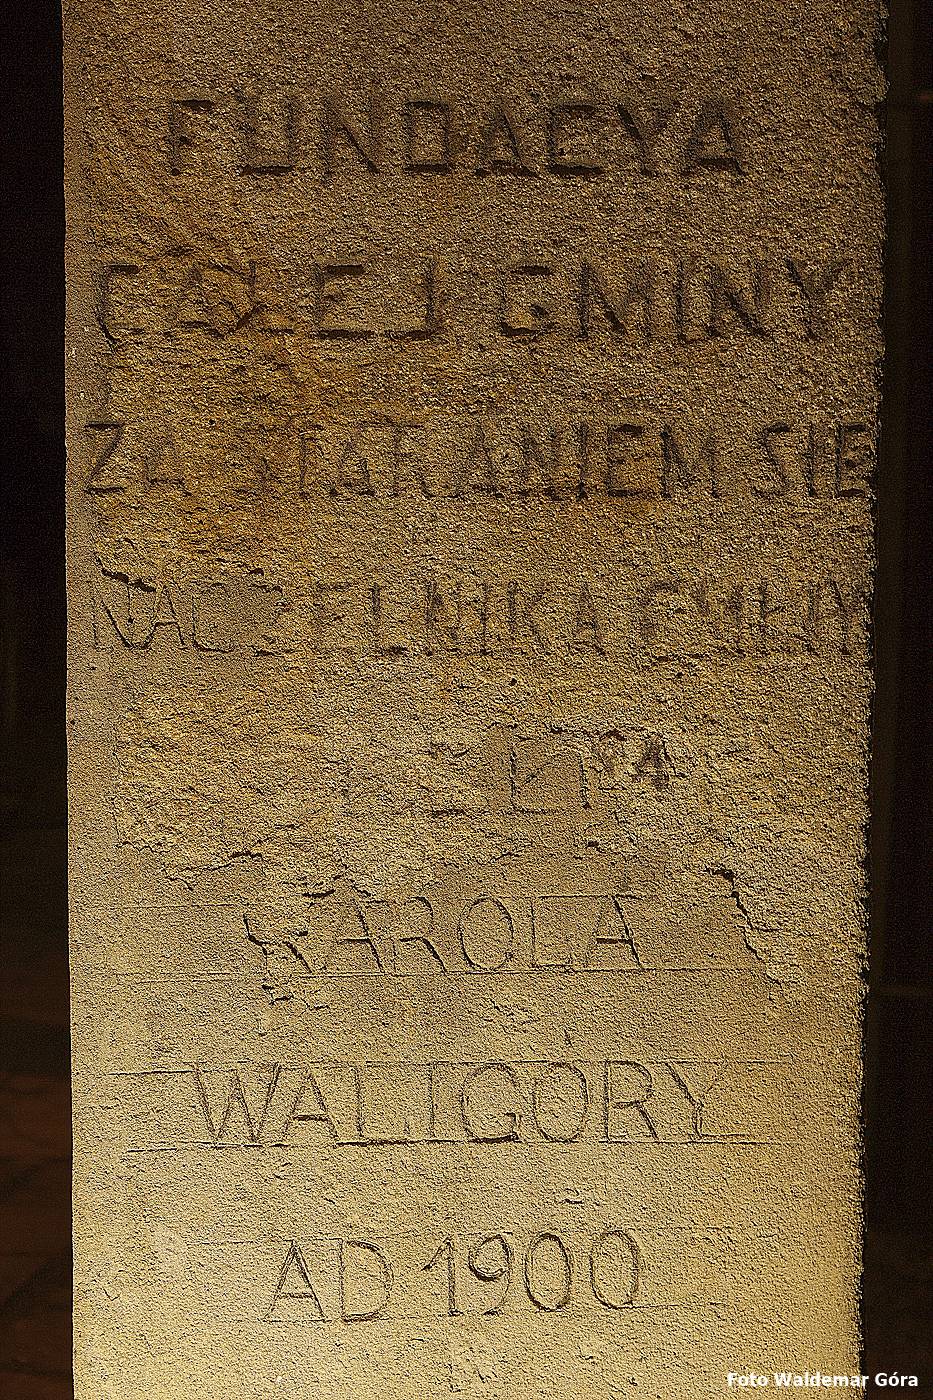 FUNDACYA
CAŁEJ GMINY
ZA STARANIEM SIE
NACZELNIKA GMINY
KAROLA
WALIGÓRY
AD 1900
Foto Waldemar Góra